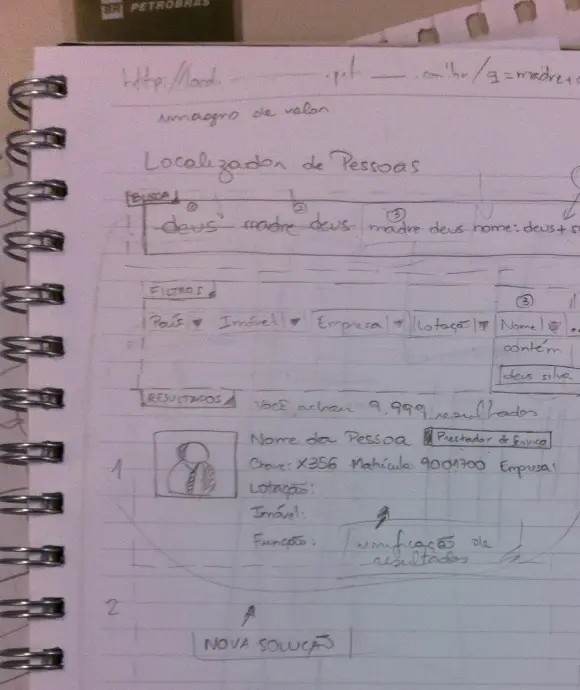 BR PETROBRAS
http://
de valor
Localizador de Pessoas
BUSCA
① ②
deus madre deus ③ madre deus nome: deus+
FILTROS ③
País ▼ Imóvel ▼ Empresa ▼ Lotação ▼ Nome
contém
deus silva
RESULTADOS Você achou 9.999 resultados
Nome da Pessoa Prestador de Serviço
1 Chave: X356 Matrícula 9001700 Empresa:
Lotação:
Imóvel:
Função: unificação de
resultados
2
NOVA SOLUÇÃO